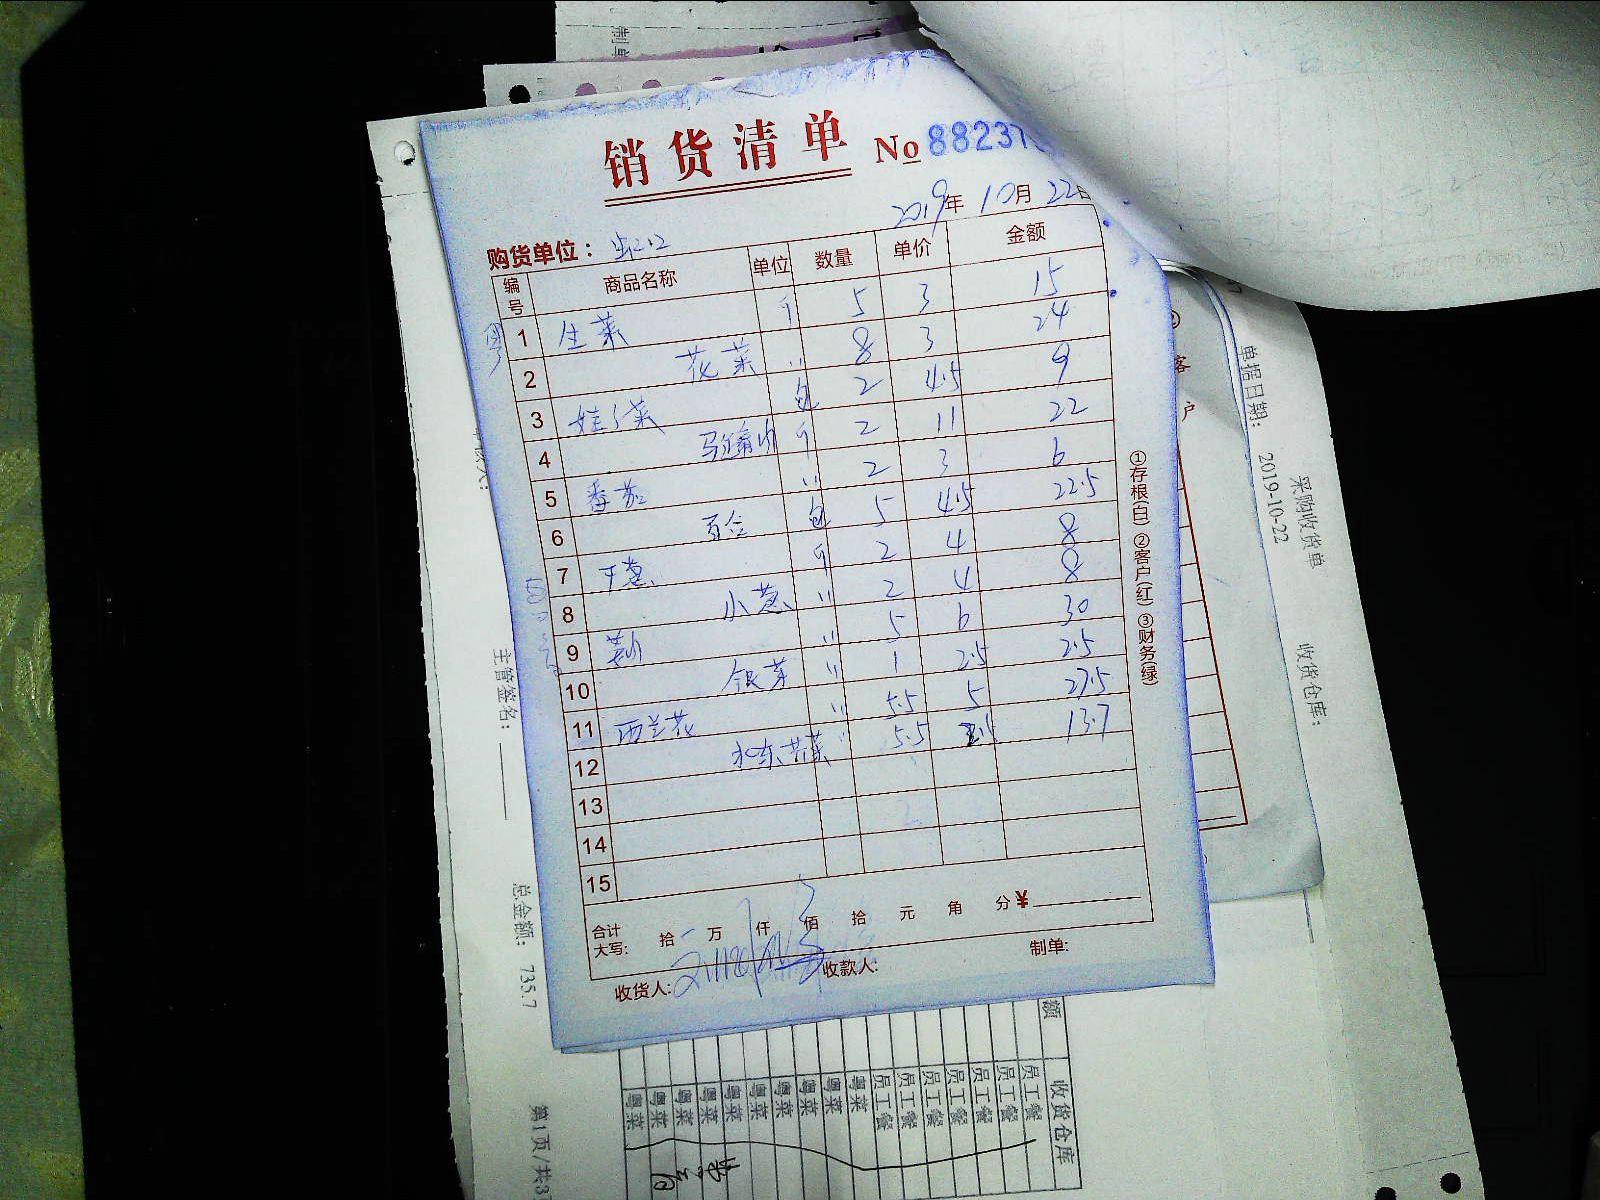 销货清单 No 88237
2019年 10月 22日
购货单位：虹口
编号 商品名称 单位 数量 单价 金额
1 生菜 斤 5 3 15
2 花菜 〃 8 3 24
3 娃子菜 包 2 4.5 9
4 斤 2 11 22
5 番茄 〃 2 3 6
6 百合 包 5 4.5 22.5
7 干葱 斤 2 4 8
8 小葱 〃 2 4 8
9 〃 5 6 30
10 银芽 〃 1 2.5 2.5
11 西兰花 〃 5.5 5 27.5
12 水东芥菜 〃 5.5 2.5 13.7
13
14
15
合计
大写： 拾 万 仟 佰 拾 元 角 分 ¥
收货人: 收款人: 制单:
①存根(白) ②客户(红) ③财务(绿)
采购收货单
单据日期: 2019-10-22
收货仓库:
主管签名:
总金额: 735.7
第1页/共3
额 收货仓库
员工餐
员工餐
员工餐
员工餐
员工餐
员工餐
员工餐
粤菜
粤菜
粤菜
粤菜
粤菜
粤菜
粤菜
粤菜
粤菜
粤菜